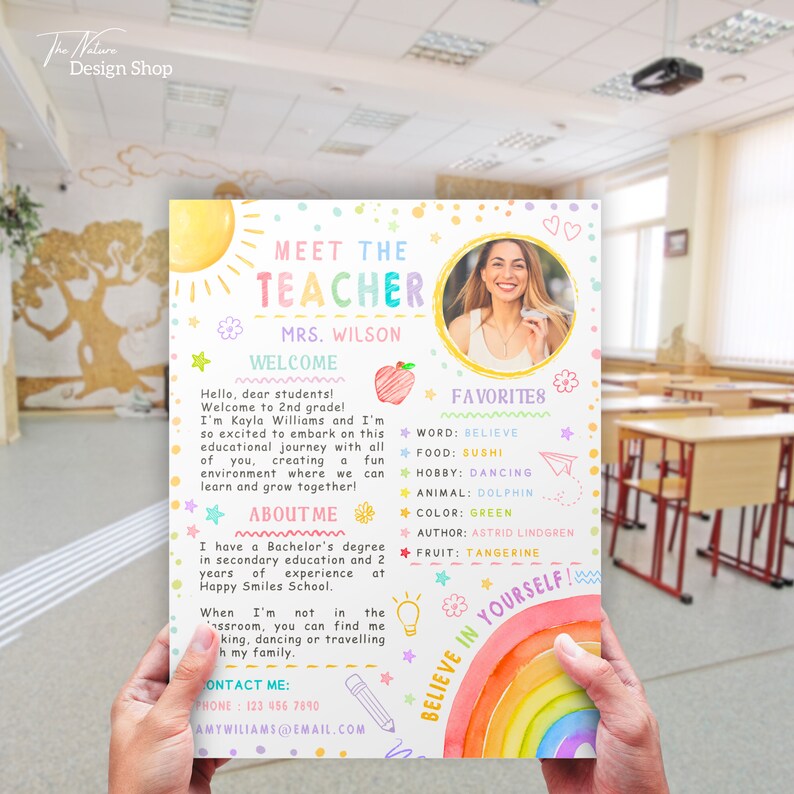 The Nature
Design Shop
MEET THE
TEACHER
MRS. WILSON
WELCOME
Hello, dear students!
Welcome to 2nd grade!
I'm Kayla Williams and I'm
so excited to embark on this
educational journey with all
of you, creating a fun
environment where we can
learn and grow together!
ABOUT ME
I have a Bachelor's degree
in secondary education and 2
years of experience at
Happy Smiles School.
When I'm not in the
you can find me
dancing or travelling
my family.
CONTACT ME:
PHONE : 123 456 7890
AMYWILIAMS@EMAIL.COM
FAVORITES
WORD: BELIEVE
FOOD: SUSHI
HOBBY: DANCING
ANIMAL: DOLPHIN
COLOR: GREEN
AUTHOR: ASTRID LINDGREN
FRUIT: TANGERINE
BELIEVE IN YOURSELF!